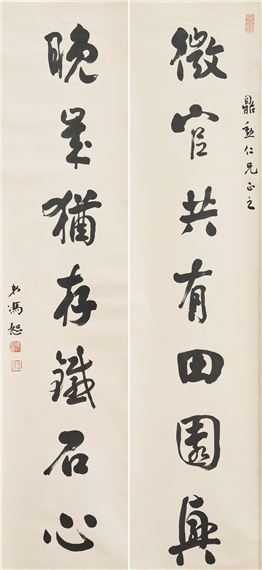 鼎勳仁兄正之
微官共有田園興
晚歲猶存鐵石心
弟馮恕